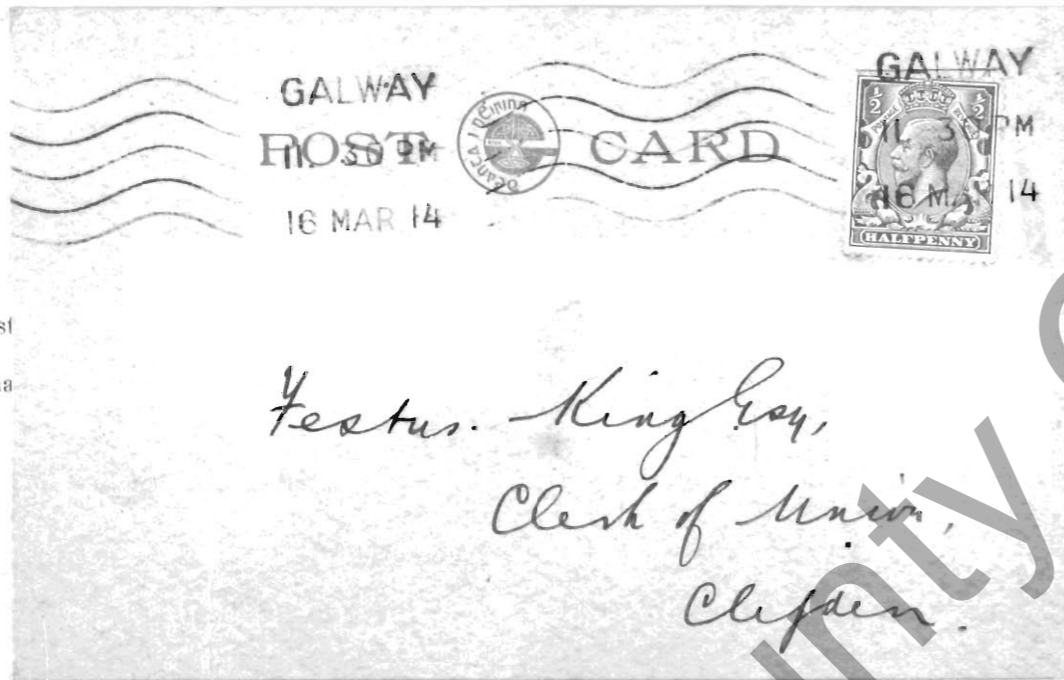 GALWAY
11. 30 PM
16 MAR 14
POST CARD
DÉANTA I NÉIRINN
GALWAY
11. 30 PM
16 MAR 14
½ ½
POSTAGE REVENUE
HALFPENNY
Festus. King Esq,
Clerk of Union,
Clifden.
st
na
unty